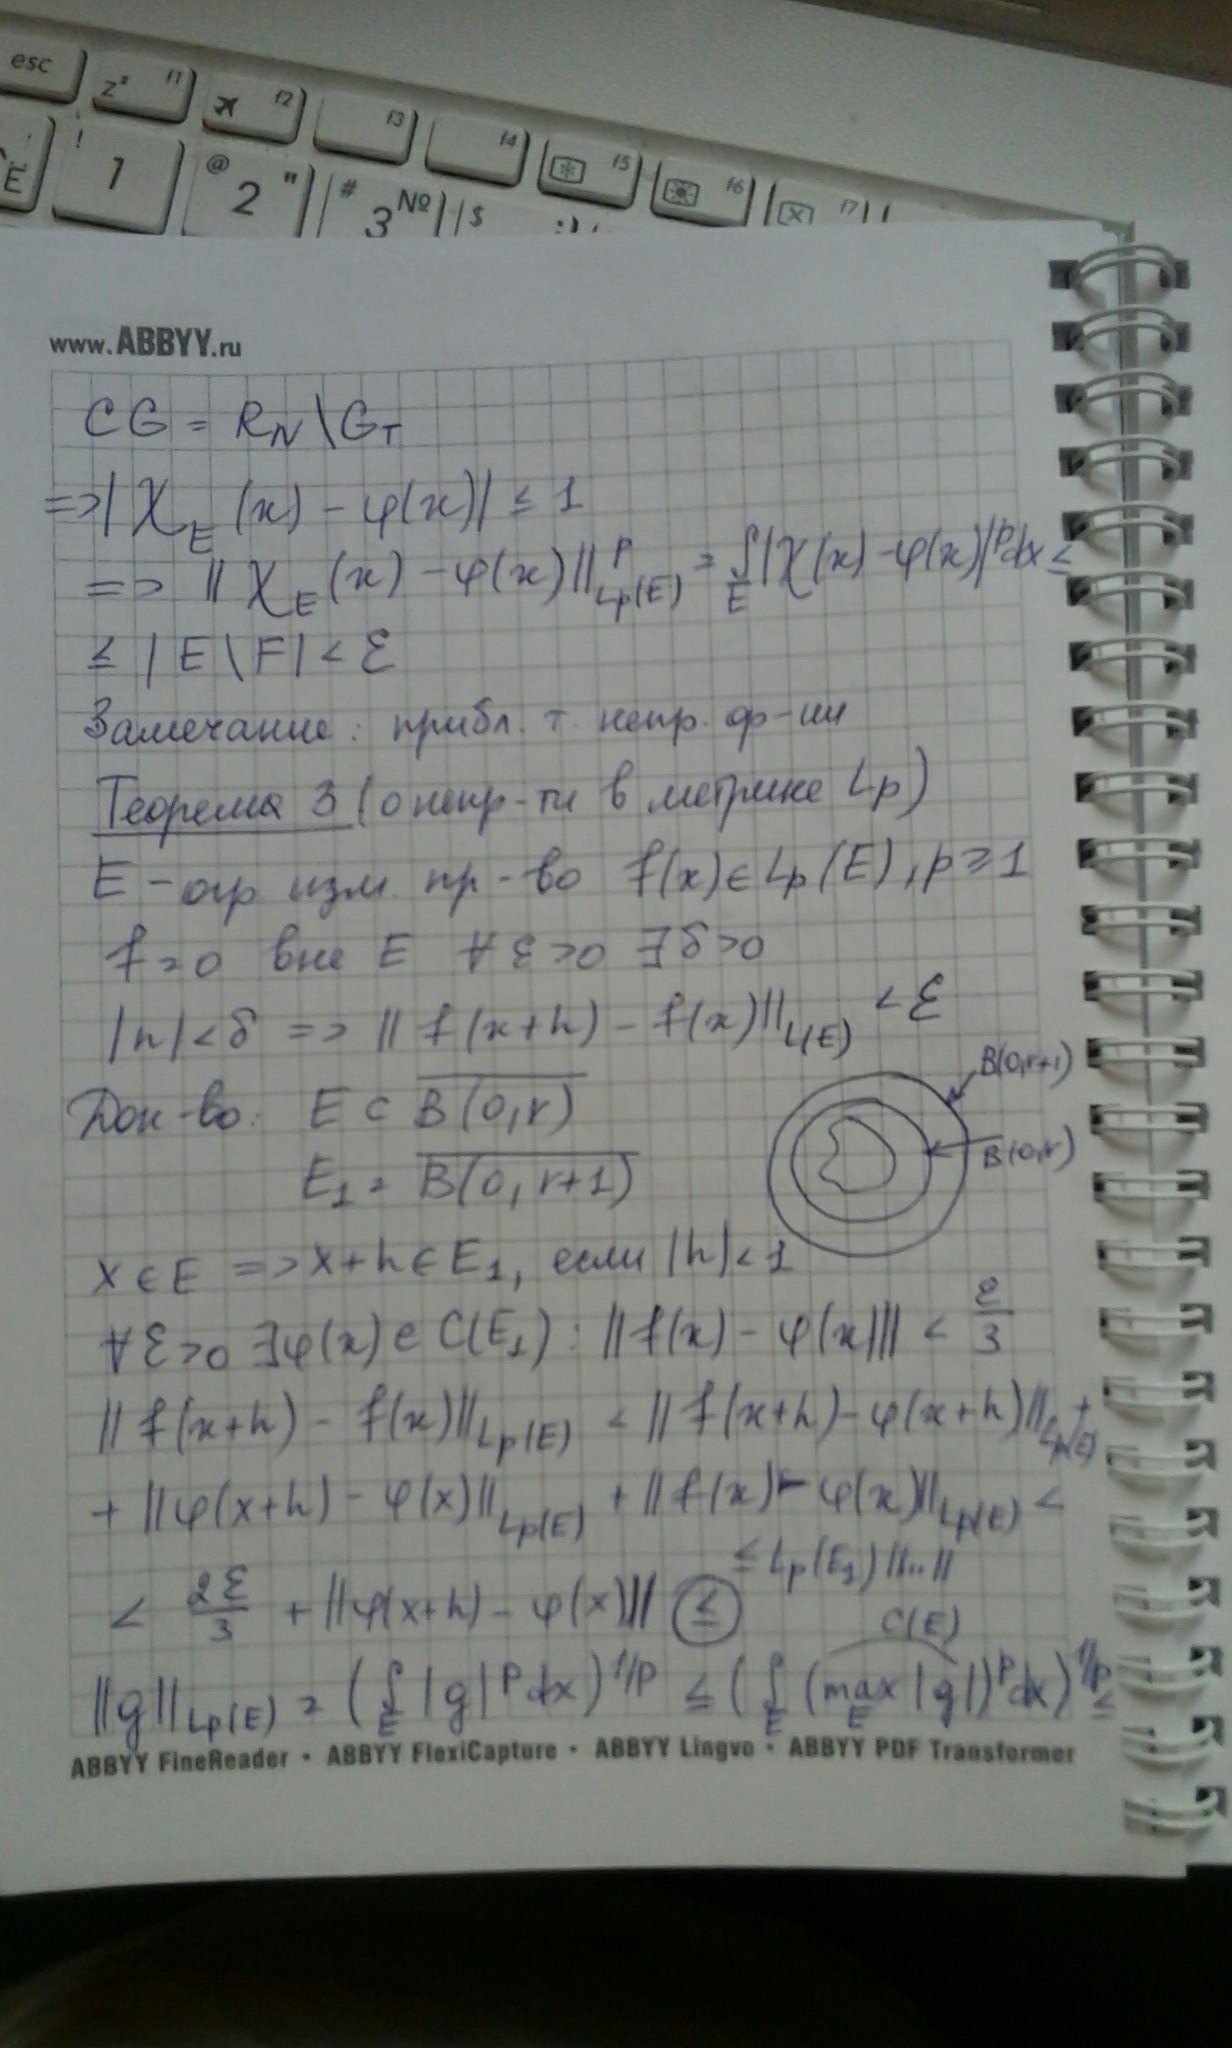 esc
z² f1
f2
f3
f4
f5
f6
f7
Ё ! 1 @ 2 " # 3 № $
www.ABBYY.ru
CG = R_N \ G_T
=> |χ_E(x) - φ(x)| ≤ 1
=> ||χ_E(x) - φ(x)||^p_{Lp(E)} = ∫_E |χ(x) - φ(x)|^p dx ≤
≤ |E \ F| < ε
Замечание: прибл. т. непр. ф-ии
Теорема 3 (о непр-ти в метрике Lp)
E - огр изм. пр-во f(x) ∈ Lp(E), p ≥ 1
f = 0 вне E ∀ε>0 ∃δ>0
|h| < δ => ||f(x+h) - f(x)||_{L(E)} < ε
Док-во: E ⊂ \overline{B(0,r)}
B(0,r+1)
E_1 = \overline{B(0,r+1)}
B(0,r)
x ∈ E => x+h ∈ E_1, если |h| < 1
∀ε>0 ∃φ(x) ∈ C(E_1) : ||f(x) - φ(x)|| < ε/3
||f(x+h) - f(x)||_{Lp(E)} < ||f(x+h) - φ(x+h)||_{Lp(E)} +
+ ||φ(x+h) - φ(x)||_{Lp(E)} + ||f(x) - φ(x)||_{Lp(E)} <
≤ Lp(E_1) ||...||
< 2ε/3 + ||φ(x+h) - φ(x)|| ≤
C(E)
||g||_{Lp(E)} = (∫_E |g|^p dx)^{1/p} ≤ (∫_E (max_E |g|)^p dx)^{1/p} ≤
ABBYY FineReader • ABBYY FlexiCapture • ABBYY Lingvo • ABBYY PDF Transformer